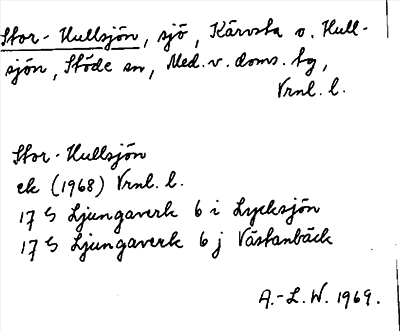 Stor-Hullsjön, sjö, Kärvsta o. Hull-
sjön, Stöde sn, Med. v. doms. tg,
Vrnl. l.
Stor-Hullsjön
ek (1968) Vrnl. l.
17 G Ljungaverk 6 i Lycksjön
17 G Ljungaverk 6 j Västanbäck
A.-L. W. 1969.